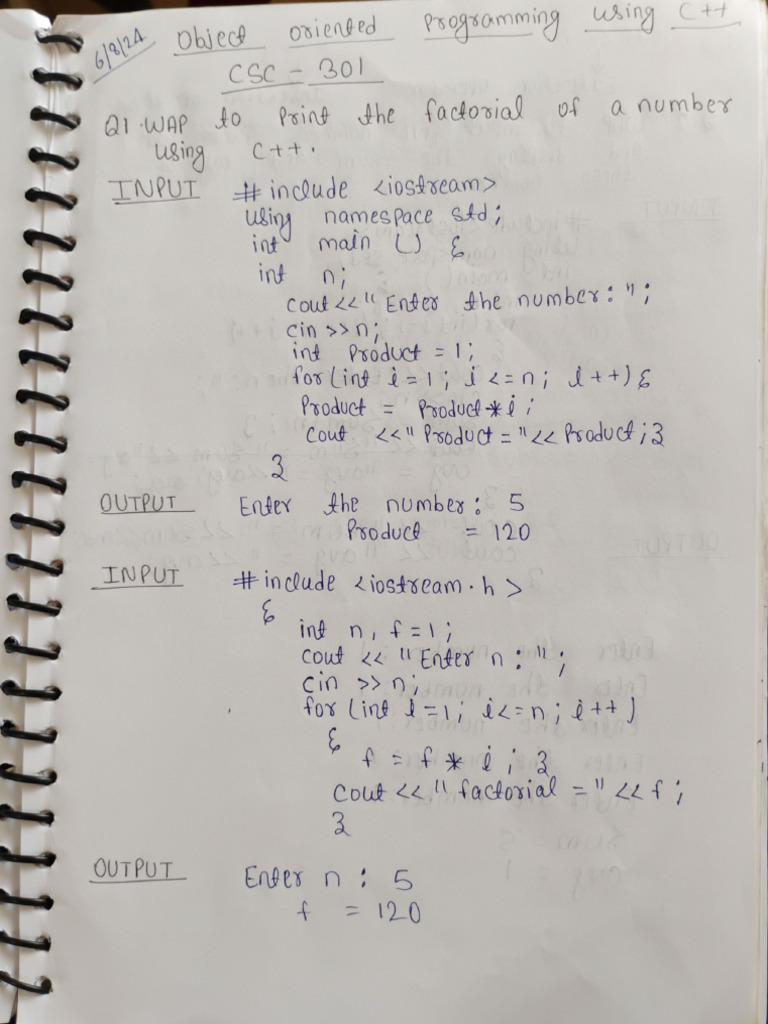 6/8/24 Object oriented Programming using C++
CSC - 301
Q1. WAP to Print the factorial of a number
using C++.
INPUT #include <iostream>
using namespace std;
int main () {
int n;
cout<<"Enter the number: ";
cin >>n;
int Product = 1;
for(int i=1; i<=n; i++) {
Product = Product*i;
Cout <<"Product="<< Product;}
}
OUTPUT Enter the number: 5
Product = 120
INPUT #include <iostream.h>
{
int n, f=1;
cout << "Enter n: ";
cin >> n;
for (int i=1; i<=n; i++)
{
f = f * i; }
Cout << "factorial =" << f;
}
OUTPUT Enter n: 5
f = 120